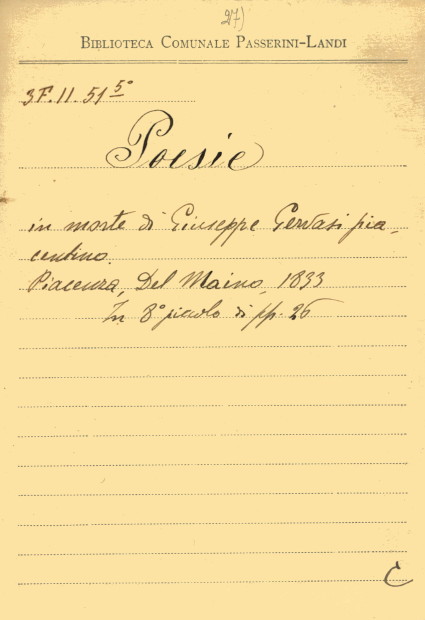 27)
BIBLIOTECA COMUNALE PASSERINI-LANDI
3F.II.51 5º
Poesie
in morte di Giuseppe Gervasi pia-
centino.
Piacenza, Del Maino, 1833
In 8º piccolo di pp. 26
C